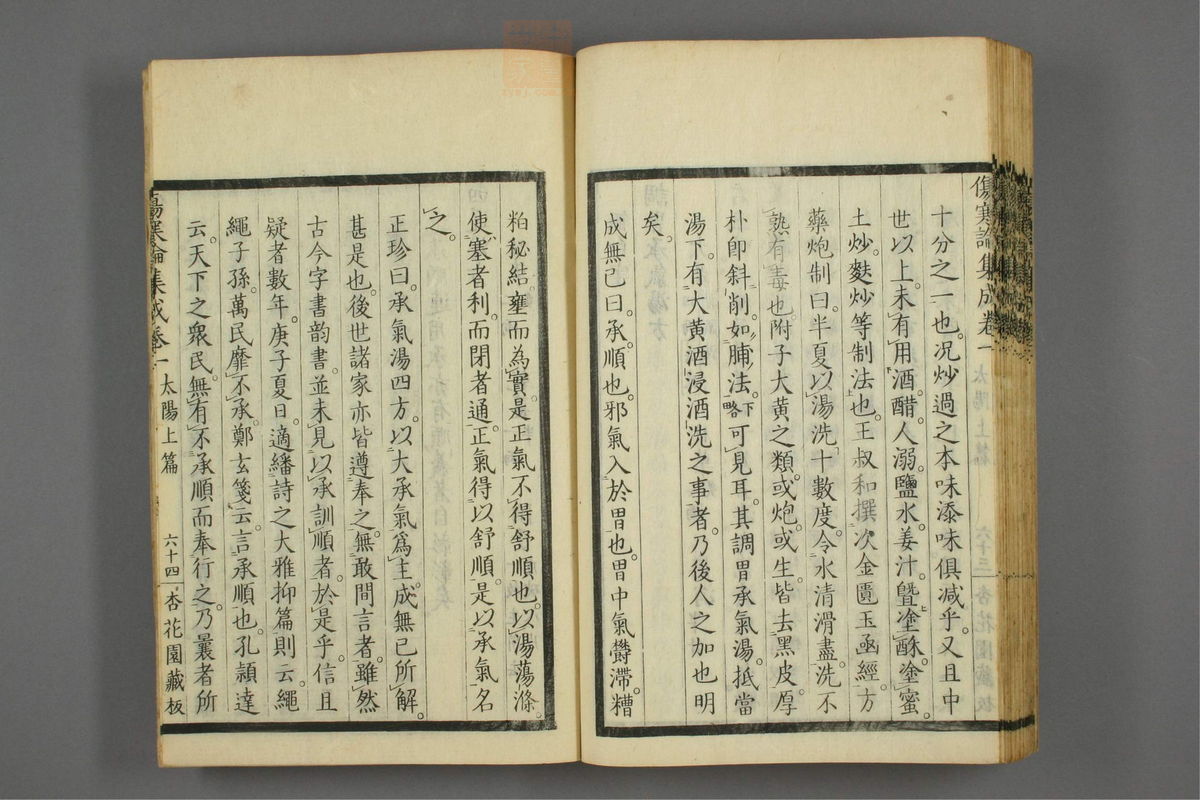 傷寒論集成卷一 太陽上篇 六十三 杏花園藏板
十分之一也。况炒過之本味添味俱減乎。又且中
世以上。未有用酒。醋。人溺。鹽水。姜汁。曁塗酥。塗蜜。
土炒。麩炒等制法也。王叔和撰次金匱玉函經。方
藥炮制曰。半夏以湯洗十數度。令水清滑盡。洗不
熟有毒也。附子大黄之類。或炮。或生。皆去黑皮。厚
朴即斜削。如脯法。下略可見耳。其調胃承氣湯。抵當
湯下。有大黄酒浸酒洗之事者。乃後人之加也明
矣。
成無已曰。承。順也。邪氣入於胃也。胃中氣欝滯。糟
粕秘結。壅而為實。是正氣不得舒順也。以湯蕩滌。
使塞者利。而閉者通。正氣得以舒順。是以承氣名
之。
正珍曰。承氣湯四方。以大承氣爲主。成無已所解。
甚是也。後世諸家亦皆遵奉之。無敢間言者。雖然
古今字書韵書。並未見以承訓順者。於是乎信且
疑者數年。庚子夏日。適繙詩之大雅抑篇則云。繩
繩子孫。萬民靡不承。鄭玄箋云。言承順也。孔頴達
云。天下之衆民。無有不承順而奉行之。乃曩者所
傷寒論集成卷一 太陽上篇 六十四 杏花園藏板